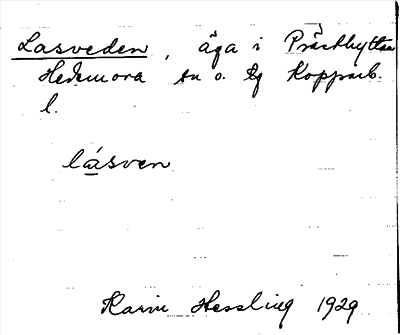 Lasveden, äga i Prästhyttan
Hedemora sn o. tg Kopparb.
l.
låsven
Karin Hessling 1929